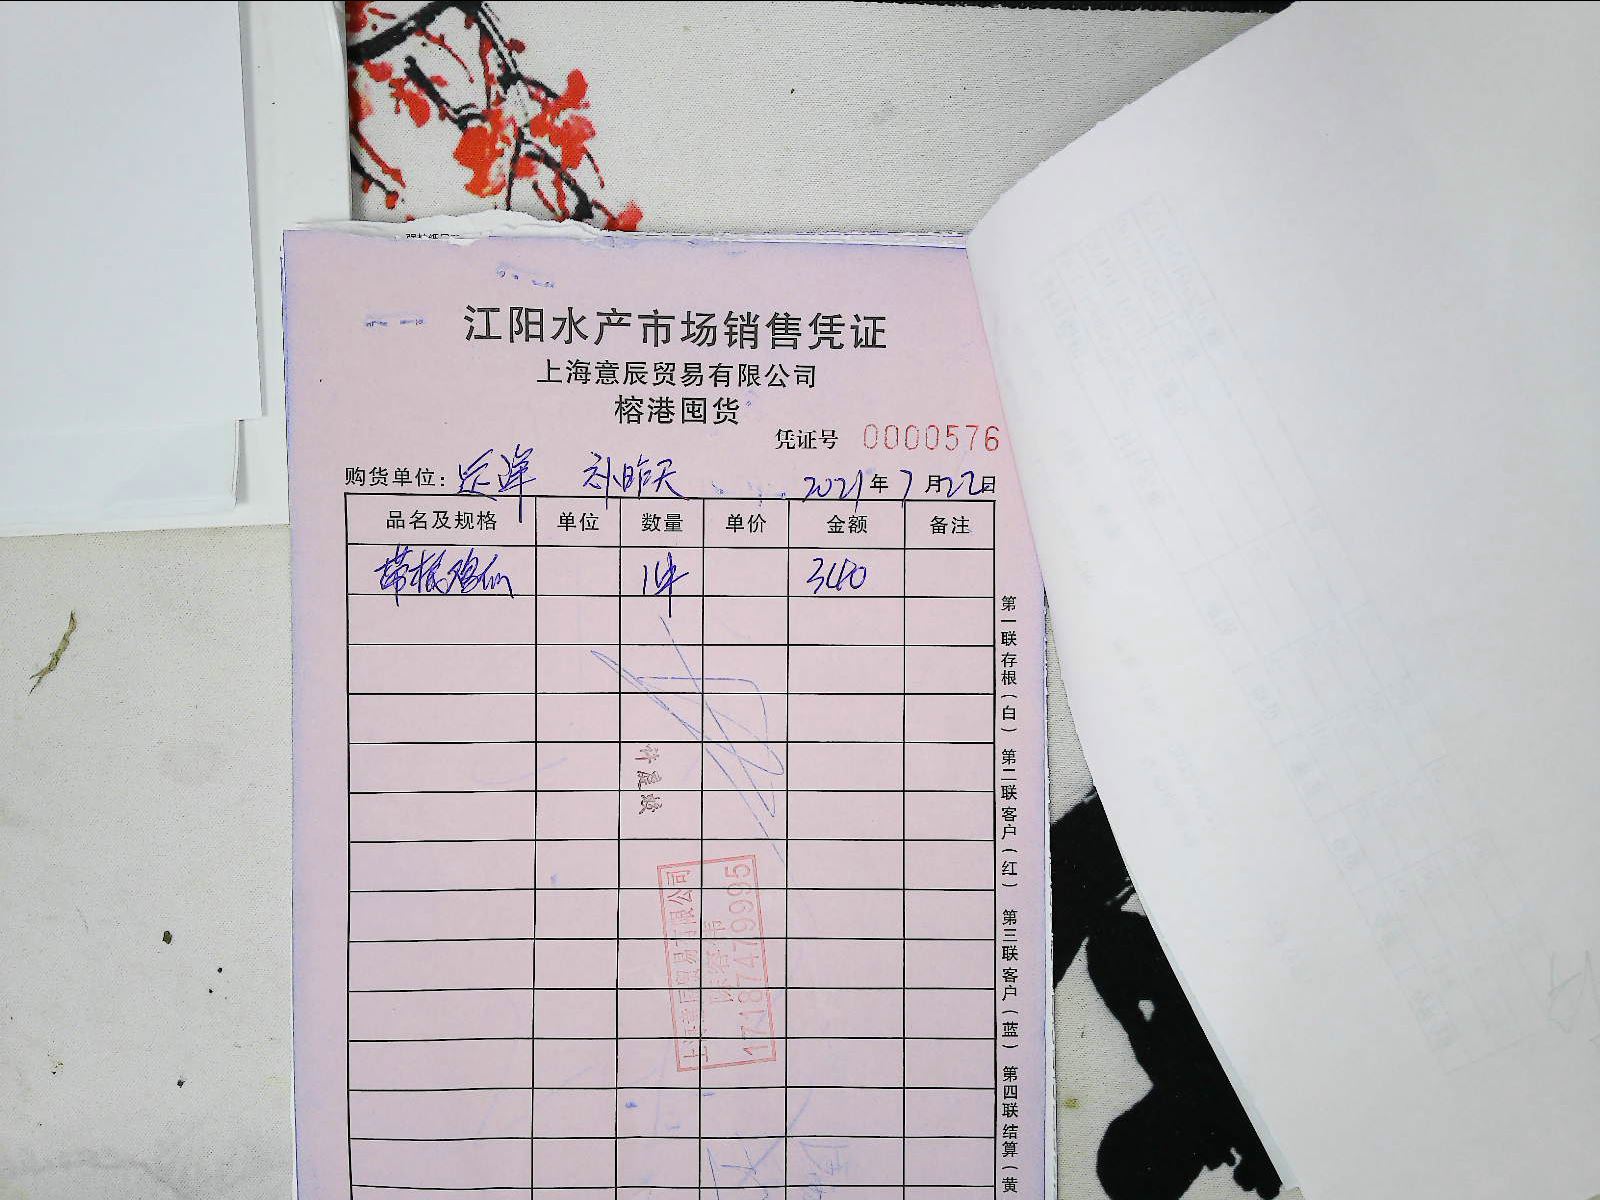 江阳水产市场销售凭证
上海意辰贸易有限公司
榕港囤货
凭证号 0000576
购货单位: 补昨天 2021年7月22日
品名及规格 单位 数量 单价 金额 备注
1件 340
第一联存根(白) 第二联客户(红) 第三联客户(蓝) 第四联结算(黄
上海意辰贸易有限公司
17187479995